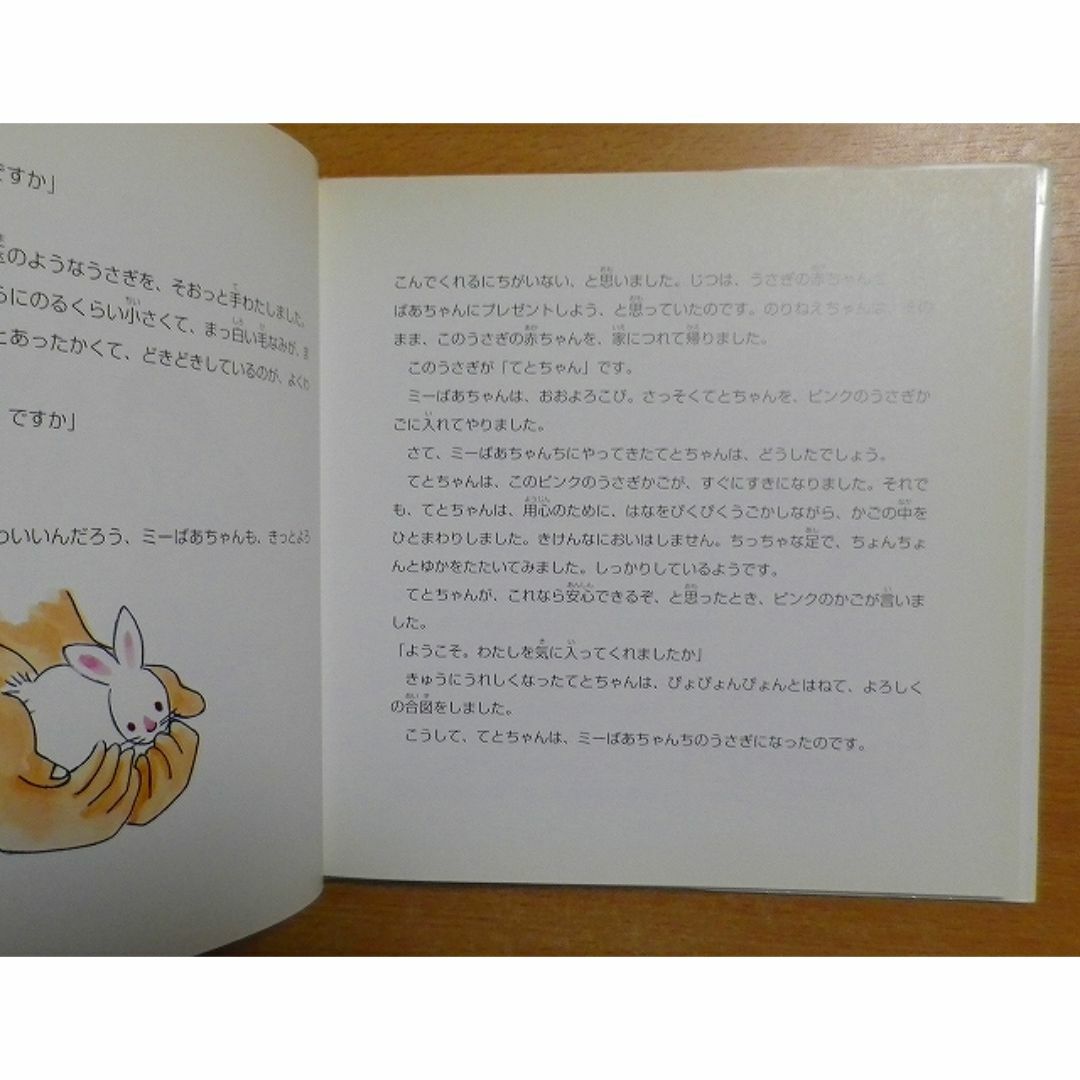 ですか」
のようなうさぎを、そおっと手わたしました。
にのるくらい小さくて、まっ白い毛なみが、ま
とあったかくて、どきどきしているのが、よくわ
ですか」
わいいんだろう、ミーばあちゃんも、きっとよろ
こんでくれるにちがいない、と思いました。じつは、うさぎの赤ちゃんを、
ばあちゃんにプレゼントしよう、と思っていたのです。のりねえちゃんは、その
まま、このうさぎの赤ちゃんを、家につれて帰りました。
このうさぎが「てとちゃん」です。
ミーばあちゃんは、おおよろこび。さっそくてとちゃんを、ピンクのうさぎか
ごに入れてやりました。
さて、ミーばあちゃんちにやってきたてとちゃんは、どうしたでしょう。
てとちゃんは、このピンクのうさぎかごが、すぐにすきになりました。それで
も、てとちゃんは、用心のために、はなをぴくぴくうごかしながら、かごの中を
ひとまわりしました。きけんなにおいはしません。ちっちゃな足で、ちょんちょ
んとゆかをたたいてみました。しっかりしているようです。
てとちゃんが、これなら安心できるぞ、と思ったとき、ピンクのかごが言いま
した。
「ようこそ。わたしを気に入ってくれましたか」
きゅうにうれしくなったてとちゃんは、ぴょぴょんぴょんとはねて、よろしく
の合図をしました。
こうして、てとちゃんは、ミーばあちゃんちのうさぎになったのです。